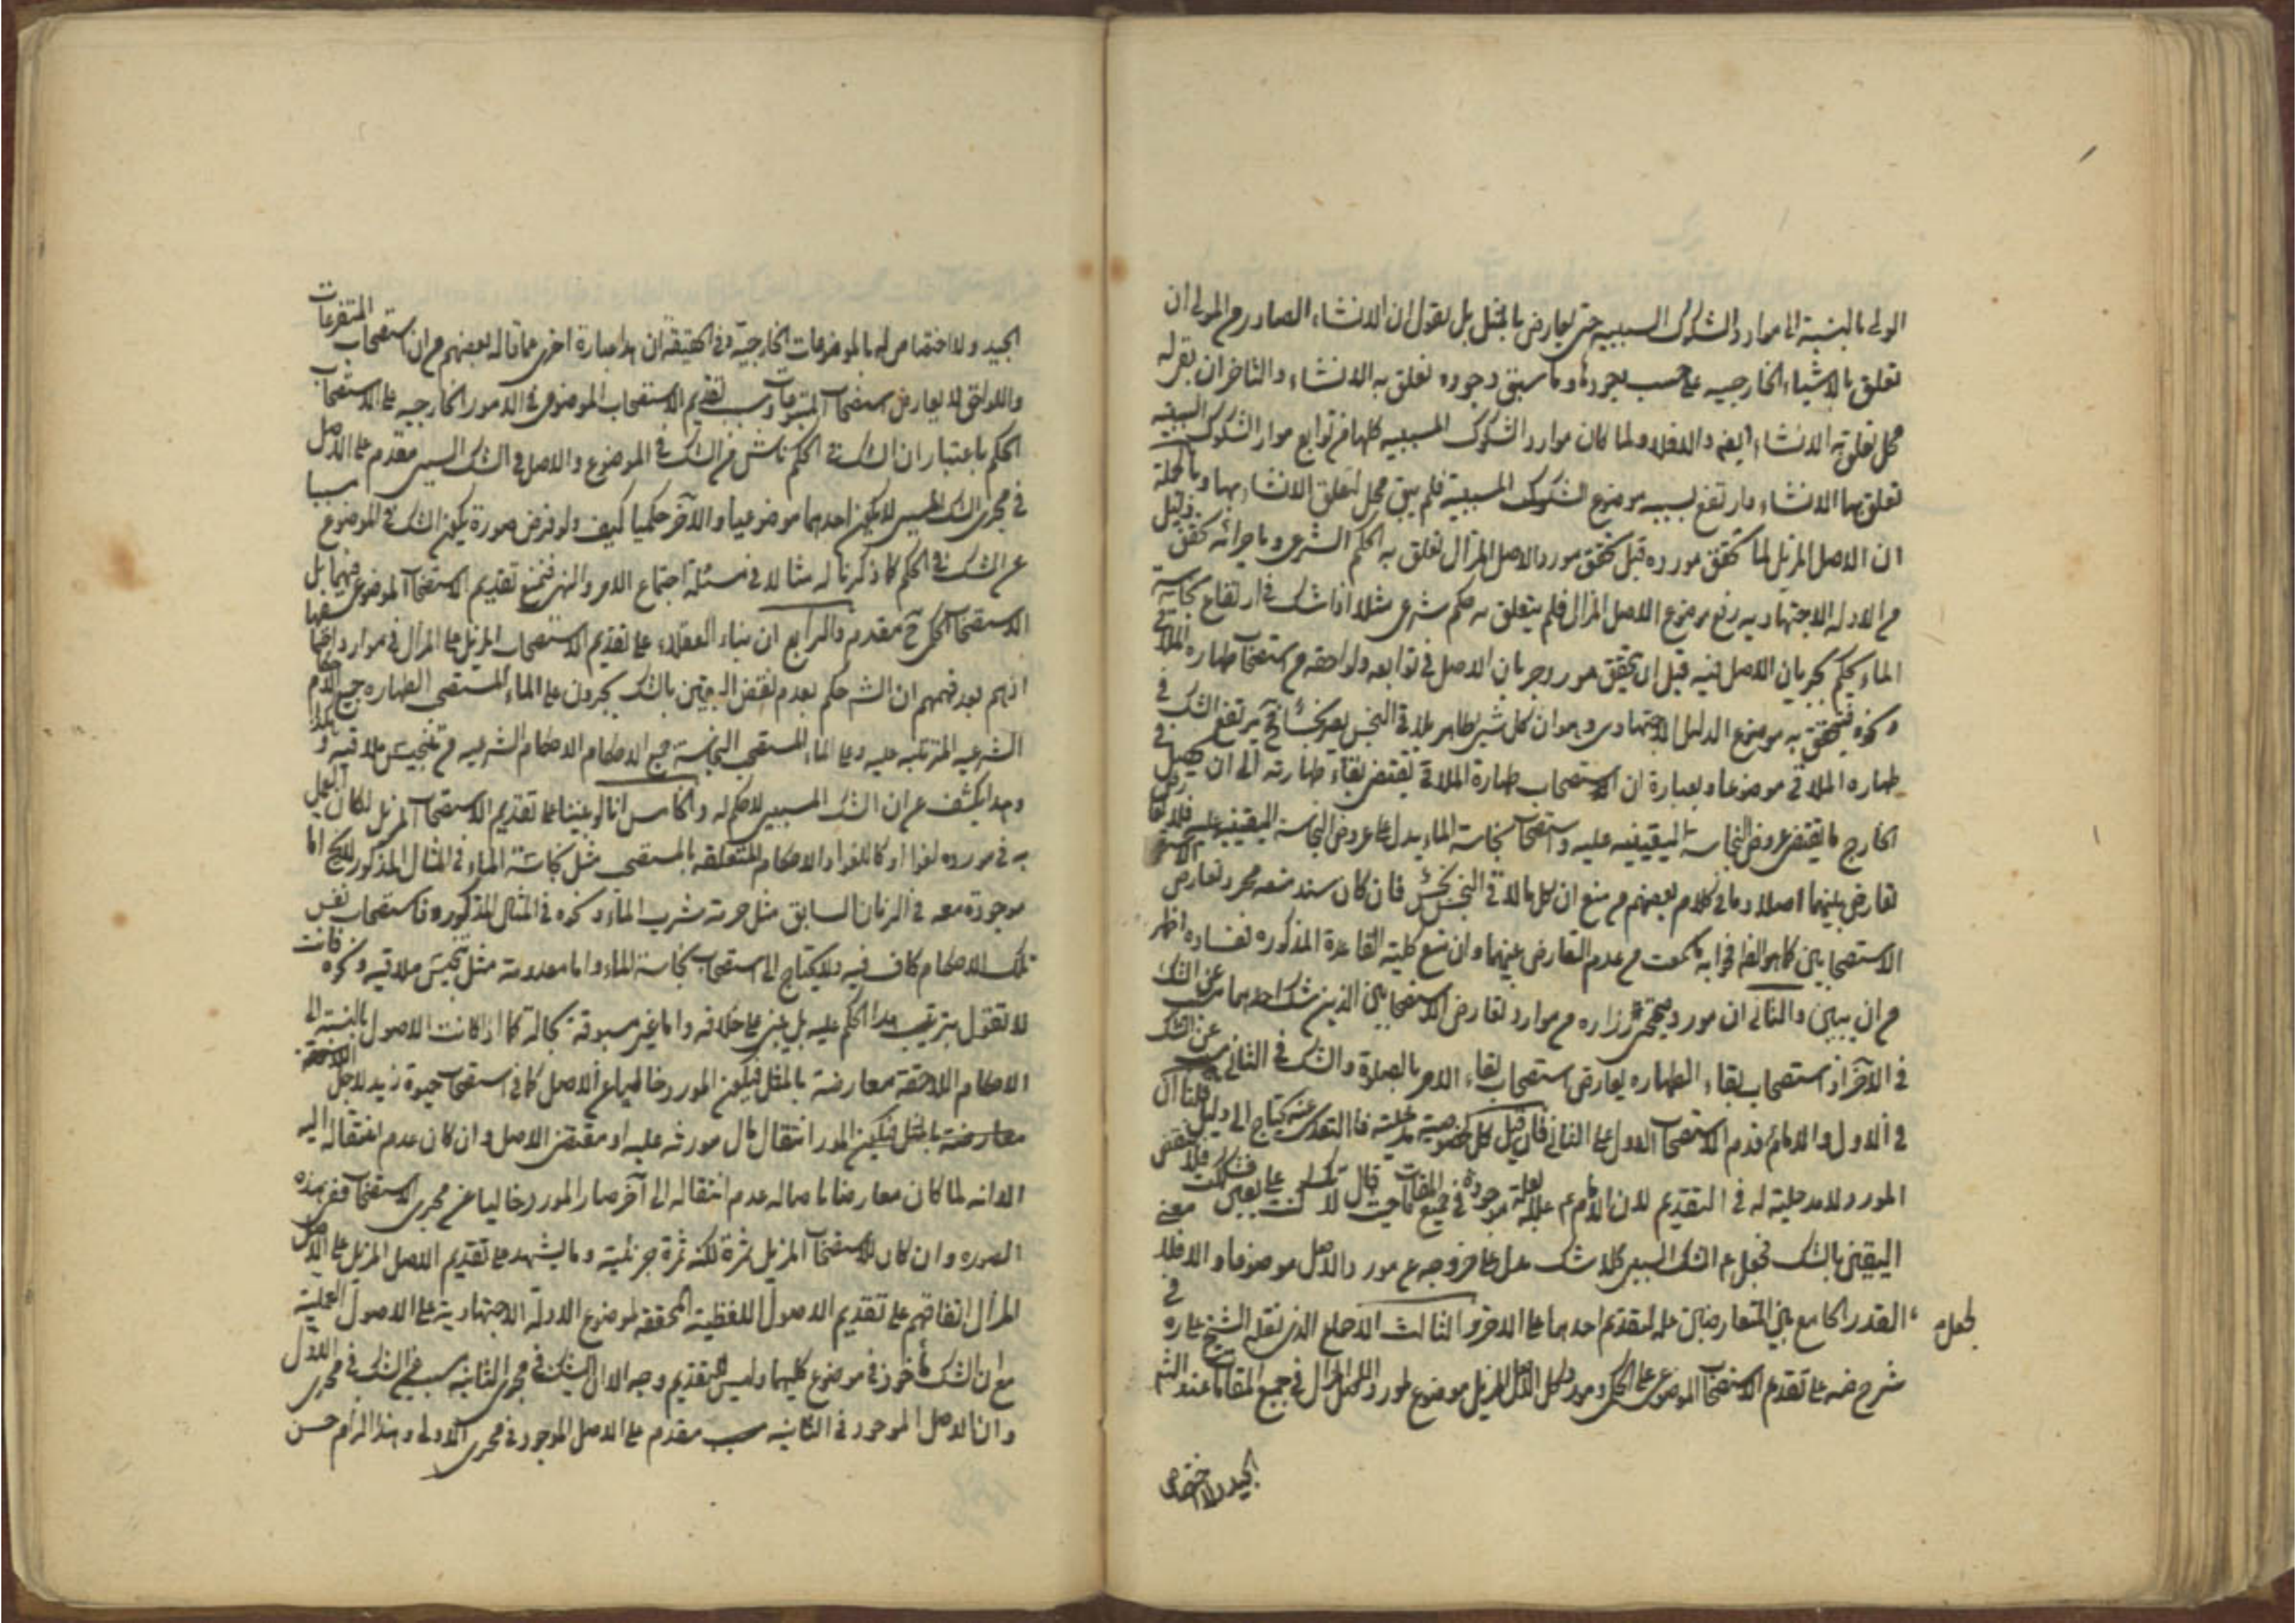 الولى بالنسبة الى موارد الشكوك السببيه حتى يعارض بالمثل بل نقول ان الانشاء الصادر من المولى ان
تعلق بالاشياء الخارجيه على حسب وجودها وما سبق وجوده تعلق به الانشاء والتاخر ان بقى له
محل تعلق به الانشاء ايضا والا فلا ولما كان موارد الشكوك المسببيه كلها من توابع موارد الشكوك السببيه
تعلق بها الانشاء وارتفع بسببه موضوع الشكوك المسببية فلم يبق محل لتعلق الانشاء بها وبالجملة
ان الاصل المزيل لما تحقق مورده قبل تحقق مورد الاصل المزال تعلق به الحكم الشرعى وباجرائه تحقق دليل
من الادله الاجتهاديه رفع موضوع الاصل المزال فلم يتعلق به حكم شرعى مثلا اذا شك فى ارتفاع نجاسة
الماء يحكم بجريان الاصل فيه قبل ان يتحقق مورد جريان الاصل فى توابعه ولواحقه من استصحاب طهاره الملاقى
ونحوه فيتحقق به موضوع الدليل الاجتهادى وهو ان كل شىء طاهر يلاقى النجس يصير نجسا فح يرتفع الشك فى
طهاره الملاقى موضوعا وبعبارة ان استصحاب طهارة الملاقى يقتضى بقاء طهارته الى ان يحصل فى
الخارج ما يقتضى عروض النجاسة اليقينيه عليه واستصحاب نجاسة الماء يدل على عروض النجاسة اليقينيه عليه فلا
تعارض بينهما اصلا وما فى كلام بعضهم من منع ان كل ما لاقى النجس نجس فان كان سند منعه مجرد تعارض
الاستصحابين كما هو الظ فجوابه ما سمعت من عدم التعارض بينهما وان منع كلية القاعدة المذكوره ففساده اظهر
من ان يبين والثانى ان مورد صحيحة زراره من موارد تعارض الاستصحابين الذين شك احدهما مسبب عن الشك
فى الآخر اذ استصحاب بقاء الطهاره يعارض استصحاب بقاء الامر بالصلوة والشك فى الثانى مسبب عن الشك
فى الاول والامام قدم الاستصحاب الاول على الثانى فان قيل لعل لخصوصية مدخلية فالتعدى عنه يحتاج الى دليل قلنا ان
المورد لا مدخلية له فى التقديم لان الامام ع علله بعلة موجودة فى جميع المقامات حيث قال لانك كنت على يقين فشككت فلا تنقض
اليقين بالشك فجعل ع الشك السببى كلا شك يدل على خروجه عن مورد الاصل موضوعا والا فلا معنى
لجعله القدر الجامع بين المتعارضين علة لتقديم احدهما على الاخر والثالث الاجماع الذى نقله الشيخ على ره فى
شرح ضه على تقديم الاستصحاب الموضوعى على الحكمى ومورد كل الاصل المزيل موضوع لمورد الاصل المزال فى جميع المقامات عند
الجيد ولا اختصاص
الجيد ولا اختصاص له بالموضوعات الخارجية وفى الحقيقة ان هذا عبارة اخرى عما قاله بعضهم من ان استصحاب المتفرعات
واللواحق لا يعارض استصحاب المتبوعات وسبب تقديم الاستصحاب الموضوعى فى الامور الخارجيه على الاستصحاب
الحكمى باعتبار ان الشك فى الحكم ناش من الشك فى الموضوع والاصل فى الشك السببى مقدم على الاصل
فى مجرى الشك المسبب لا لكون احدهما موضوعيا والآخر حكميا كيف ولو فرض صورة يكون الشك فى الموضوع مسببا
عن الشك فى الحكم كما ذكرنا له مثالا فى مسئلة اجتماع الامر والنهى فنمنع تقديم الاستصحاب الموضوعى فيها بل
الاستصحاب الحكمى ح مقدم والرابع ان بناء العقلاء على تقديم الاستصحاب المزيل على المزال فى موارد اجتماعهما
انهم بعد فهمهم ان الش حكم بعدم نقض اليقين بالشك يجرون على الماء المستصحب الطهاره جميع الاحكام
الشرعيه المترتبه عليه وعلى الماء المستصحب النجاسة جميع الاحكام الشرعيه من تنجيس ملاقيه و
وهذا يكشف عن ان الشك المسببى لا حكم له والخامس انا لو بنينا على عدم تقديم الاستصحاب المزيل لكان العمل
به فى مورده لغوا او كاللغو اذ الاحكام المتعلقه بالمستصحب مثل نجاسة الماء فى المثال المذكور اما
موجودة معه فى الزمان السابق مثل حرمة شرب الماء ونحوه فى المثال المذكور فاستصحاب نفس
تلك الاحكام كاف فيه ولا يحتاج الى استصحاب نجاسة الماء واما معدومة مثل تنجيس ملاقيه ونحوه فانت
لا تقول بترتيب هذا الحكم عليه بل يبنى على خلافه واما غير مسبوقة بحالة كما اذا كانت الاصول بالنسبة الى
الاحكام اللاحقة معارضة بالمثل فيكون المورد خاليا عن الاصل كما فى استصحاب حيوة زيد لاجل
معارضته بالمثل فيكون المورد انتقال مال مورثه عليه او مقتضى الاصل وان كان عدم انتقاله اليه
الا انه لما كان معارضا باصالة عدم انتقاله الى آخر صار المورد خاليا عن مجرى الاستصحاب ففى هذه
الصوره وان كان للاستصحاب المزيل ثمرة لكنه ثمرة جزئية ومما يشهد على تقديم الاصل المزيل على الاصل
المزال اتفاقهم على تقديم الاصول اللفظية المحققه لموضوع الادلة الاجتهادية على الاصول العملية
مع ان الشك مأخوذ فى موضوع كليهما وليس للتقديم وجه الا ان الشك فى مجرى الثانيه مسبب عن الشك فى مجرى الاول
وان الاصل الموجود فى الثانيه مسبب مقدم على الاصل الموجود فى مجرى الاولى وهذا الزام حسن